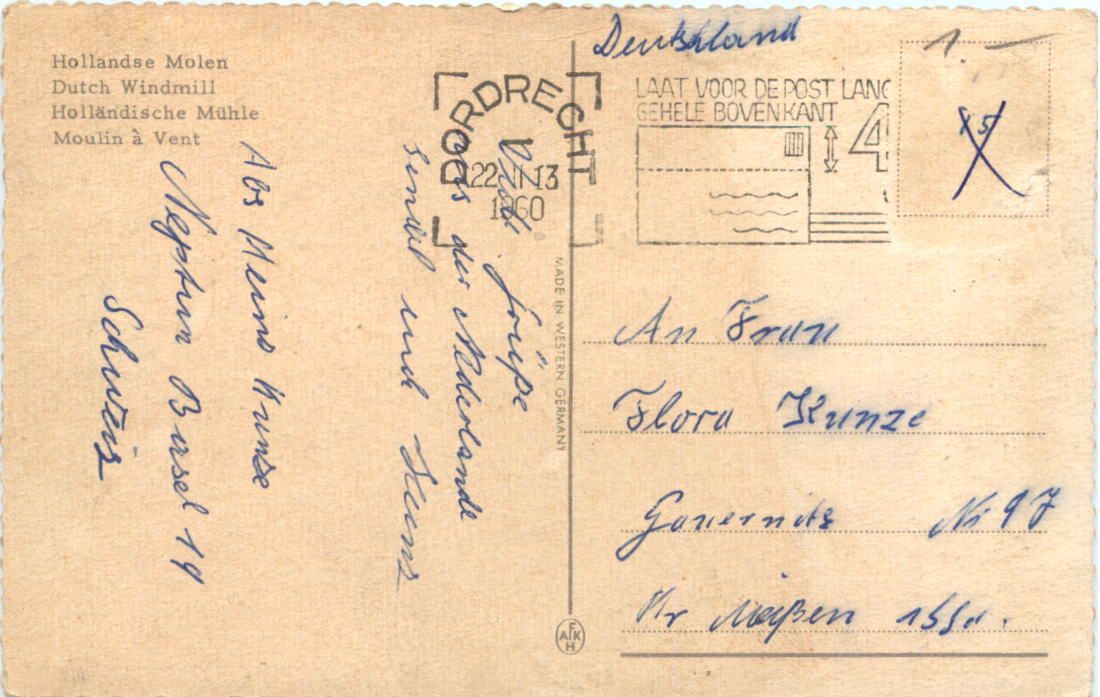 Hollandse Molen
Dutch Windmill
Holländische Mühle
Moulin à Vent
Viele Grüße
aus der Nederlande
sendet euch Heinz
Abs Heinz Kunze
Neptun Basel 19
Schweiz
MADE IN WESTERN GERMANY
AFKH
DORDRECHT
22-II 13
1960
LAAT VOOR DE POST LANG
GEHELE BOVENKANT
4
Deutschland
1.—
85
An Frau
Flora Kunze
Gauernitz Nr 97
Kr Meißen